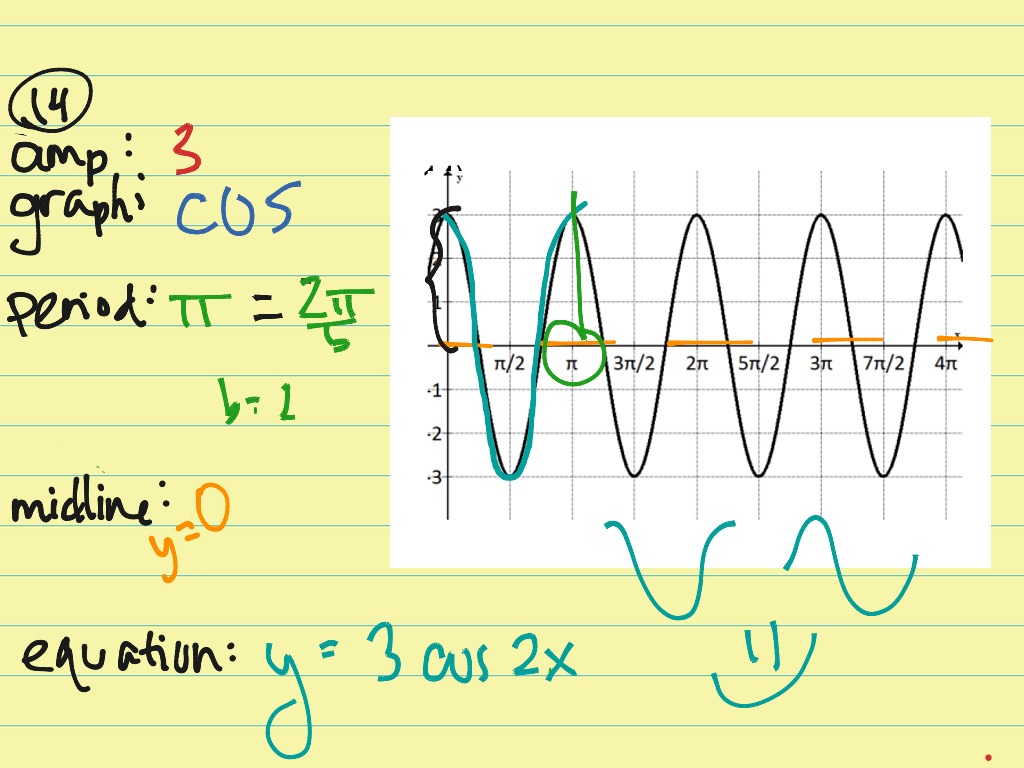 14
amp: 3
graph: cos
period: π = 2π/b
b=2
midline:
y=0
equation: y = 3 cos 2x
y
3
2
1
x
π/2 π 3π/2 2π 5π/2 3π 7π/2 4π
-1
-2
-3